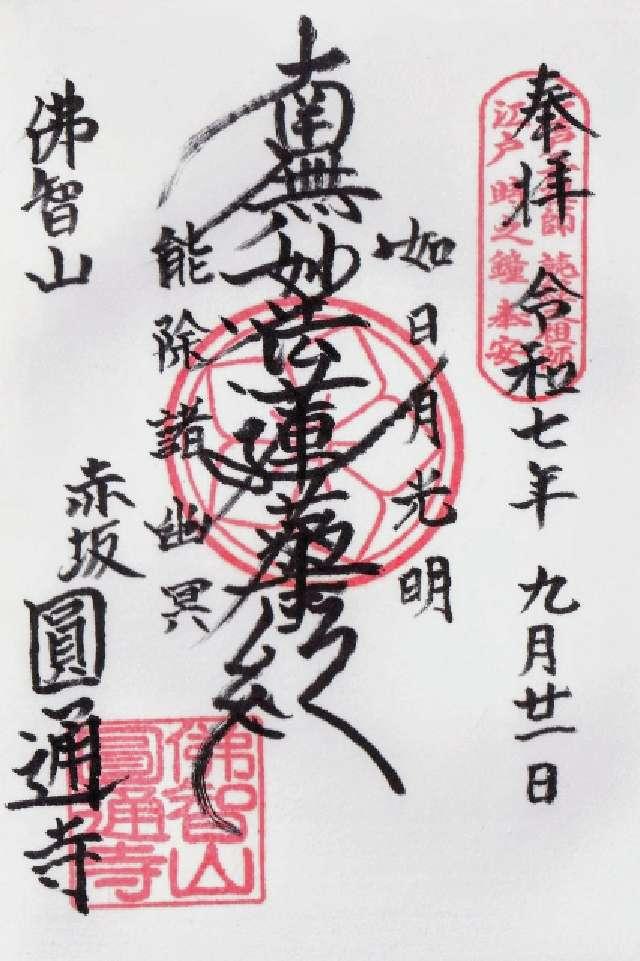 奉拝 令和七年 九月廿一日
江戸 時之鐘 奉安
如日月光明
南無妙法蓮華経
能除諸幽冥
佛智山
赤坂 圓通寺
佛智山
圓通寺